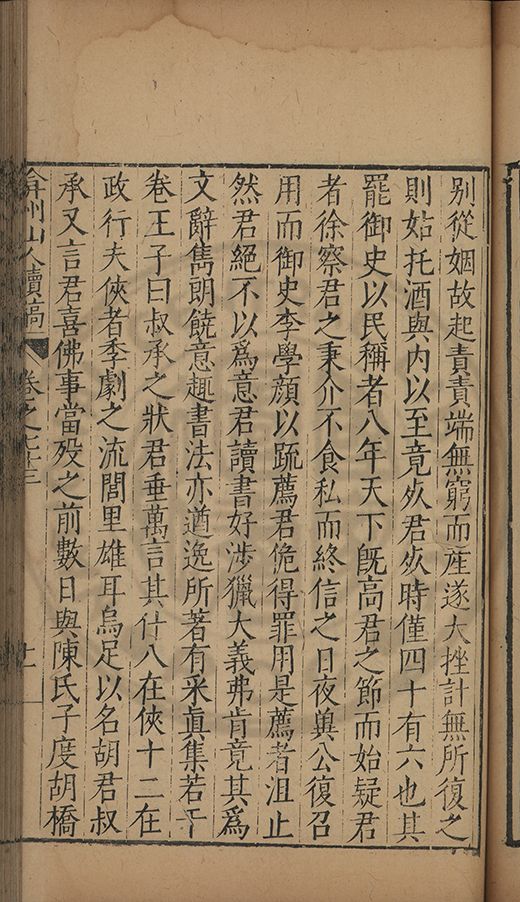 別從姻故起責責端無窮而産遂大挫計無所復之
則姑托酒與内以至竟死君死時僅四十有六也其
罷御史以民稱者八年天下既高君之節而始疑君
者徐察君之秉介不食私而終信之日夜兾公復召
用而御史李學顔以䟽薦君佹得罪用是薦者沮止
然君絕不以爲意君讀書好渉獵大義弗肯竟其爲
文辭雋朗饒意趣書法亦遒逸所著有采眞集若干
卷王子曰叔承之狀君垂萬言其什八在俠十二在
政行夫俠者季劇之流閭里雄耳烏足以名胡君叔
承又言君喜佛事當殁之前數日與陳氏子度胡橋
弇州山人續稿 卷之